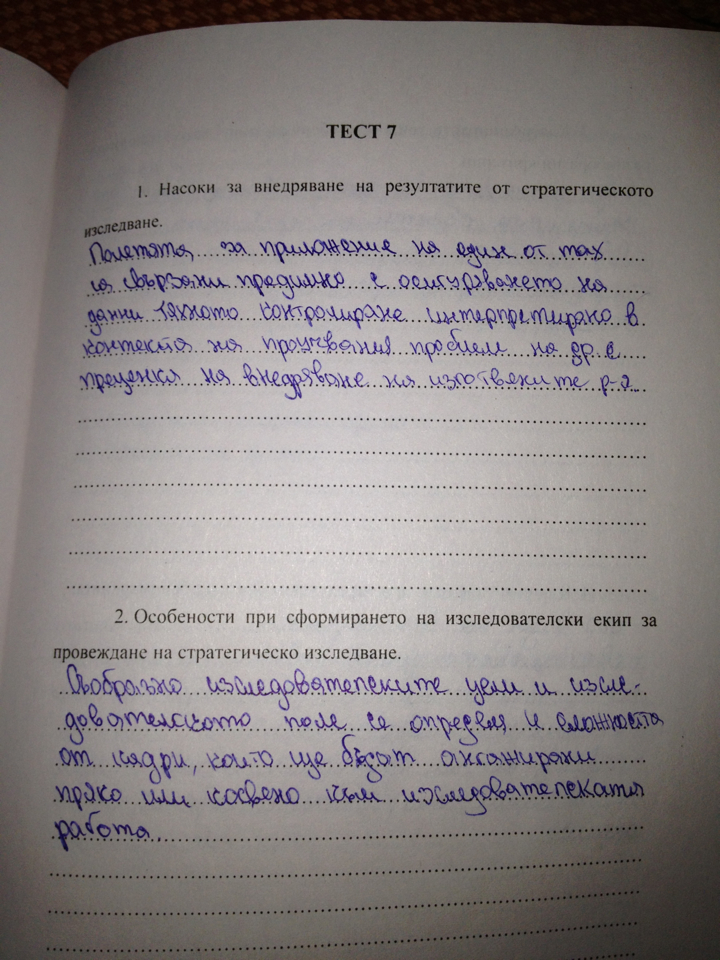 ТЕСТ 7
1. Насоки за внедряване на резултатите от стратегическото
изследване.
Полетата за приложение на един от тях
са свързани предимно с осигуряването на
данни тяхното контролиране интерпретирано в
контекста на проучвания проблем на др. с
преценка на внедряване на изготвените р-я
2. Особености при сформирането на изследователски екип за
провеждане на стратегическо изследване.
Съобразно изследователските цели и изсле-
дователското поле се определя и
от кадри, които ще бъдат ангажирани
пряко или косвено към изследователската
работа.